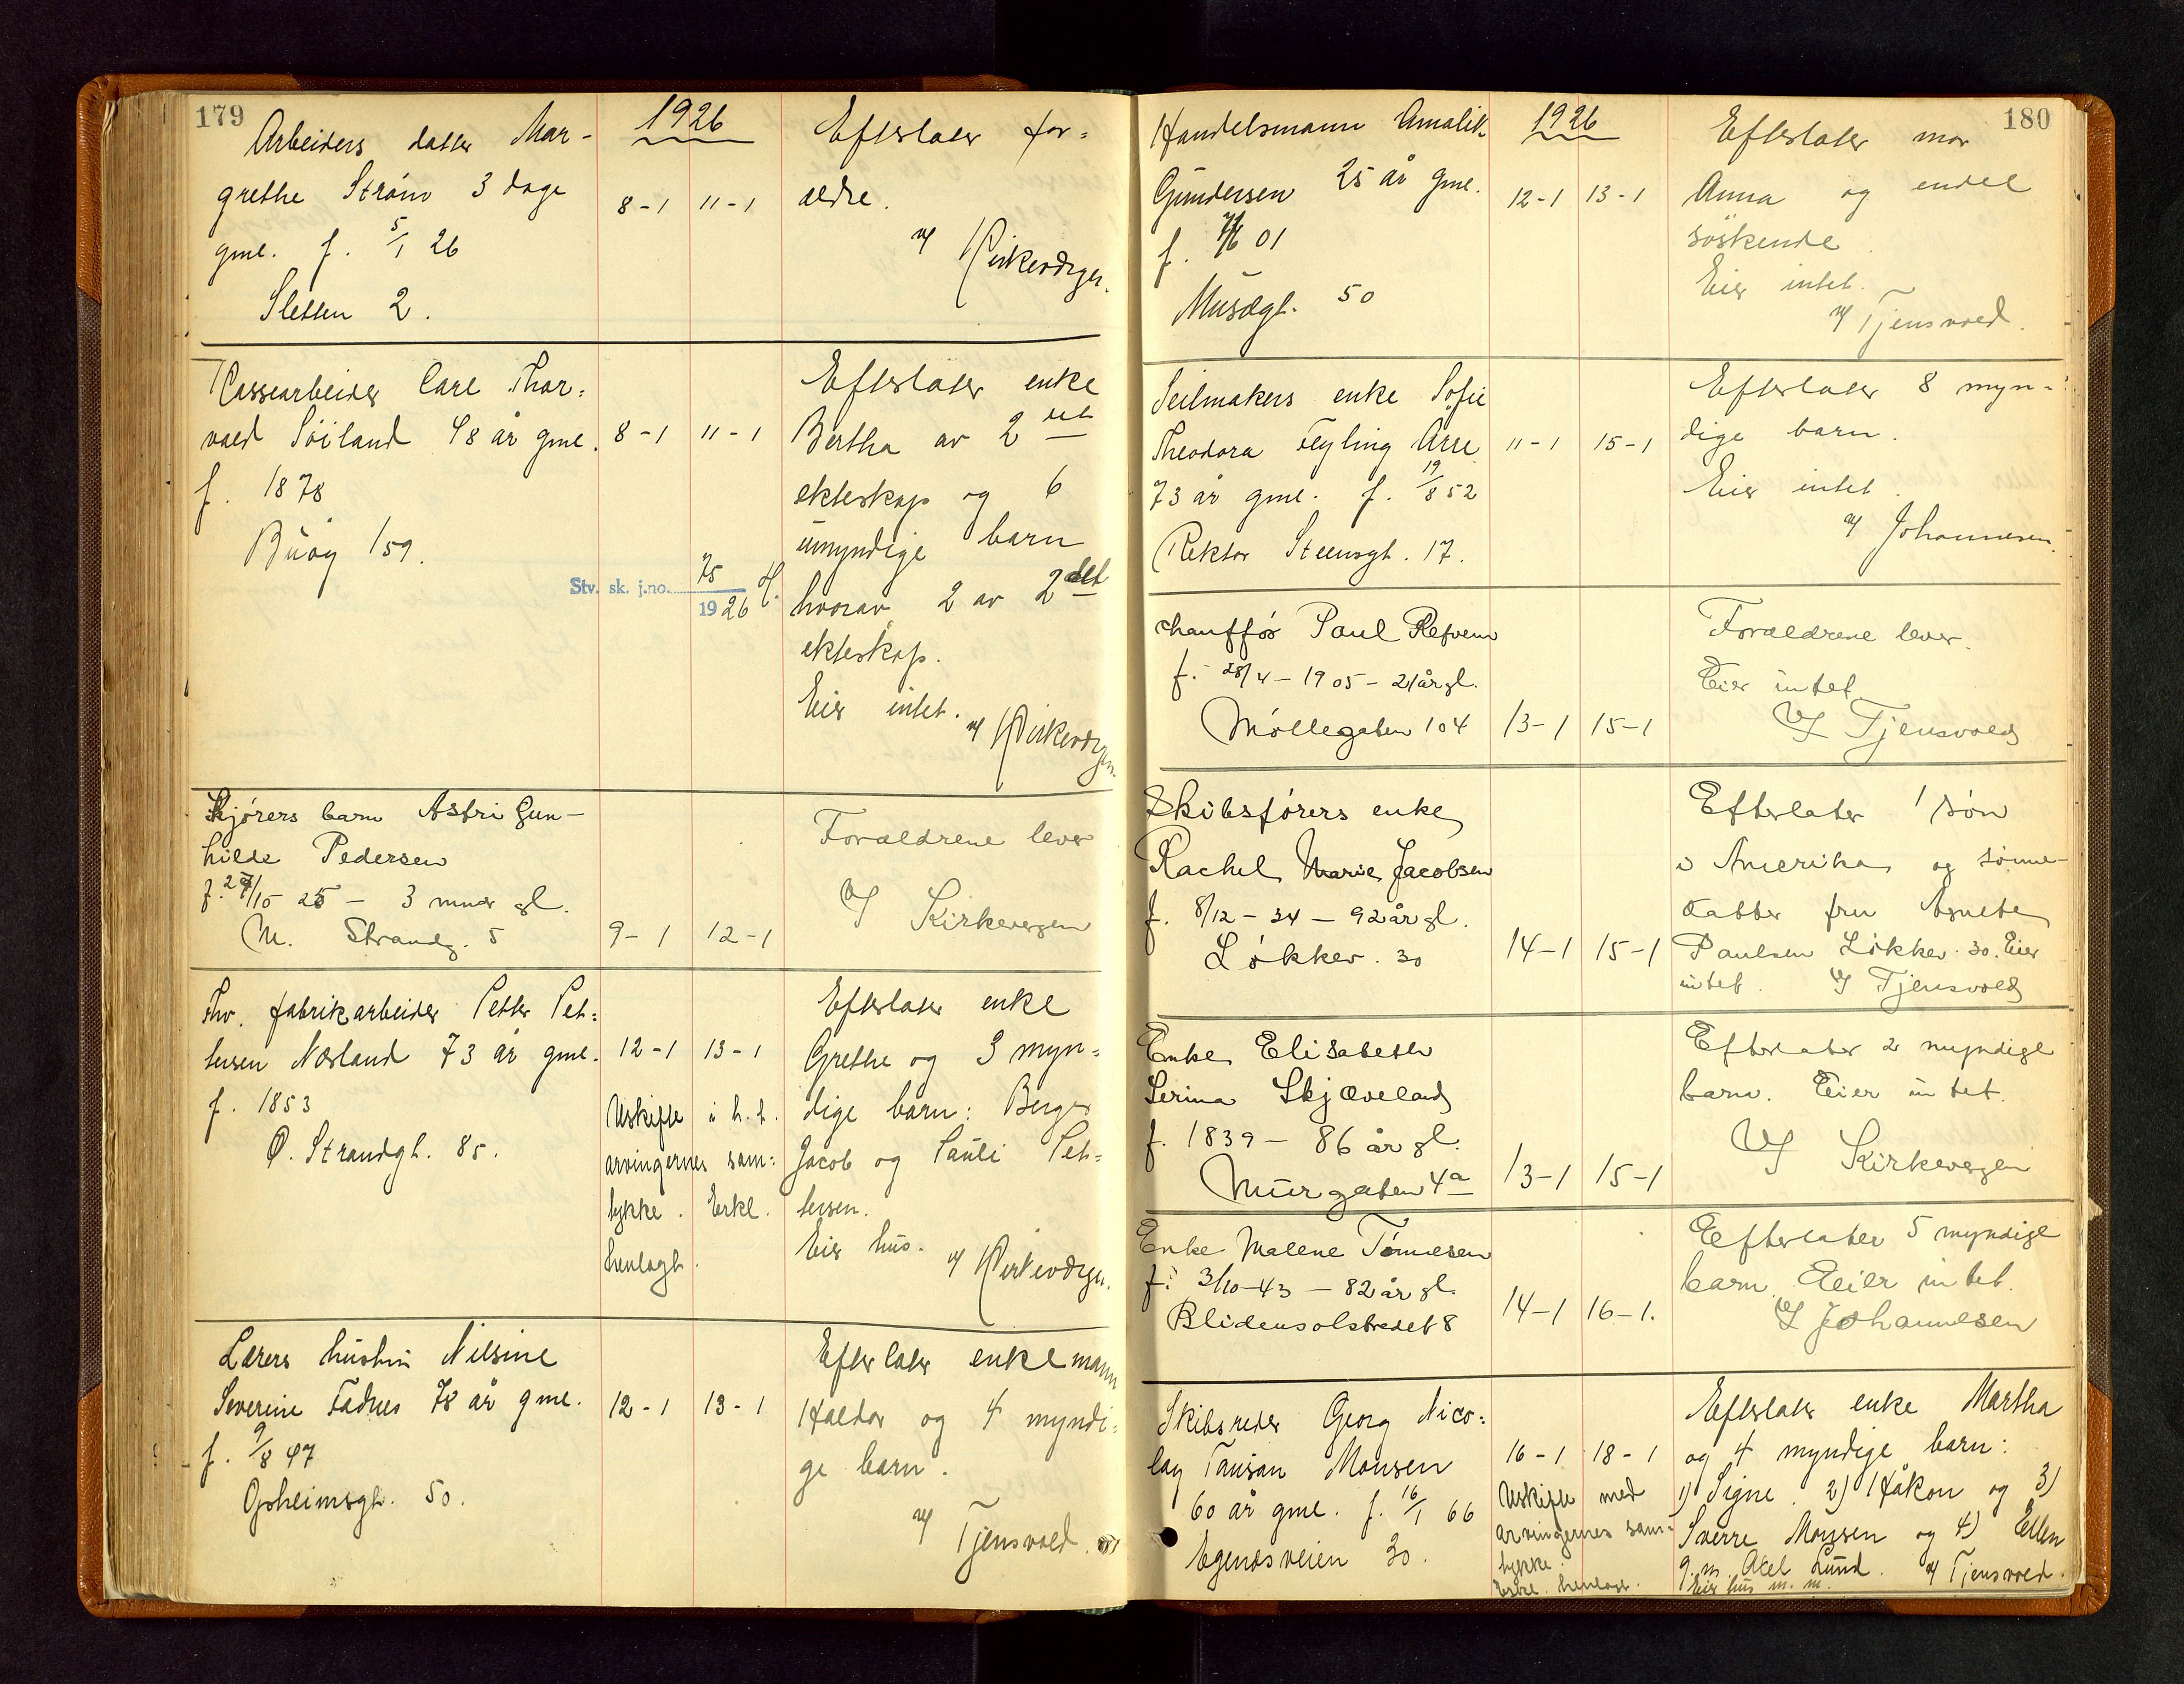 179
1926
Arbeiders datter Mar-
grethe Strøm 3 dage
gml. f. 5/1 26
Sletten 2.
8-1 11-1
Efterlater for=
ældre.
v/ Kirkevergen.
Kassearbeider Carl Thor=
vald Söiland 48 år gml.
f. 1878
Buöy 159.
8-1 11-1
Stv. sk. j.no. 75
1926
Efterlater enke
Bertha av 2 det
ekteskap og 6
umyndige barn
hvorav 2 av 2det
ekteskap.
Eier intet.
v/ Kirkevergen.
Kjørers barn Astri Gun-
hilde Pedersen
f. 27/10 25 - 3 mndr gl.
N. Strandg. 5
9-1 12-1
Forældrene lever
v/ Kirkevergen
Fhv. fabrikarbeider Petter Pet=
tersen Nærland 73 år gml.
f. 1853
Ø. Strandgt. 85.
12-1 13-1
Uskifte i h. t.
arvingernes sam=
tykke. Erkl.
henlagt.
Efterlater enke
Grethe og 3 myn=
dige barn: Berge
Jacob og Pauli Pet=
tersen.
Eier hus.
v/ Kirkevergen.
Lærers hustru Nilsine
Severine Fadnes 78 år gml.
f. 9/8 47
Opheimsgt. 50.
12-1 13-1
Efterlater enkemann
Haldor og 4 myndi=
ge barn.
v/ Tjensvold.
180
1926
Handelsmann Amalik
Gundersen 25 år gml.
f. 7/6 01
Musægt. 50
12-1 13-1
Efterlater mor
Anna og endel
söskende.
Eier intet.
v/ Tjensvold.
Seilmakers enke Sofie
Theodora Feyling Årre
73 år gml. f. 19/8 52
Rektor Steensgt. 17.
11-1 15-1
Efterlater 8 myn=
dige barn.
Eier intet.
v/ Johannesen.
chauffør Paul Refvem
f. 28/4 - 1905 - 21 år gl.
Møllegaten 104
13-1 15-1
Forældrene lever.
Eier intet
v/ Tjensvold
Skibsførers enke
Rachel Marie Jacobsen
f. 8/12 - 34 - 92 år gl.
Løkkev. 30
14-1 15-1
Efterlater 1 søn
i Amerika og sønne-
datter fru Agnete
Paulsen Løkkev. 30. Eier
intet. v/ Tjensvold
Enke Elisabeth
Serina Skjæveland
f. 1839 - 86 år gl.
Murgaten 4a
13-1 15-1
Efterlater 2 myndige
barn. Eier intet.
v/ Kirkevergen
Enke Malene Tønnesen
f. 3/10-43 - 82 år gl.
Blidensolstredet 8
14-1 16-1.
Efterlater 5 myndige
barn. Eier intet.
v/ Johannesen
Skibsreder Georg Nico=
lay Tausan Monsen
60 år gml. f. 16/1 66
Egenæsveien 30.
16-1 18-1
Uskifte med
arvingernes sam=
tykke.
Erkl. henlagt.
Efterlater enke Martha
og 4 myndige barn:
1) Signe. 2) Håkon og 3)
Sverre Monsen og 4) Ellen
g. m. Axel Lund. v/ Tjensvold.
Eier hus m. m.